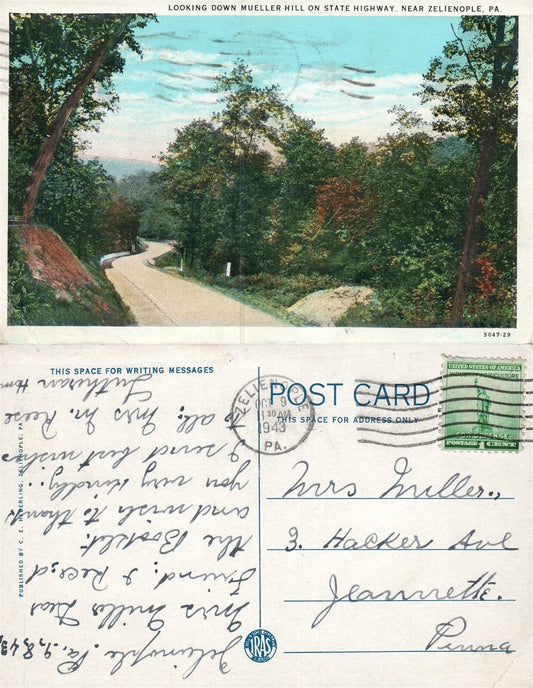 LOOKING DOWN MUELLER HILL ON STATE HIGHWAY. NEAR ZELIENOPLE, PA.
5047-29
THIS SPACE FOR WRITING MESSAGES
POST CARD
THIS SPACE FOR ADDRESS ONLY
ZELIENOPLE
OCT 9
11 30 AM
1943
PA.
UNITED STATES OF AMERICA
1 CENT
PUBLISHED BY C. E. HEBERLING, ZELIENOPLE, PA.
Zelienople. Pa. 9, 8, 43
Mrs Miller Dear
Friend; I Rece;d
the Booklet.
and wish to thank
you very kindly!!
I send best wishes
to all; Mrs M. Rese
Lutheran Hom
Mrs Miller.,
3. Hacker Ave
Jeannette.
Penna